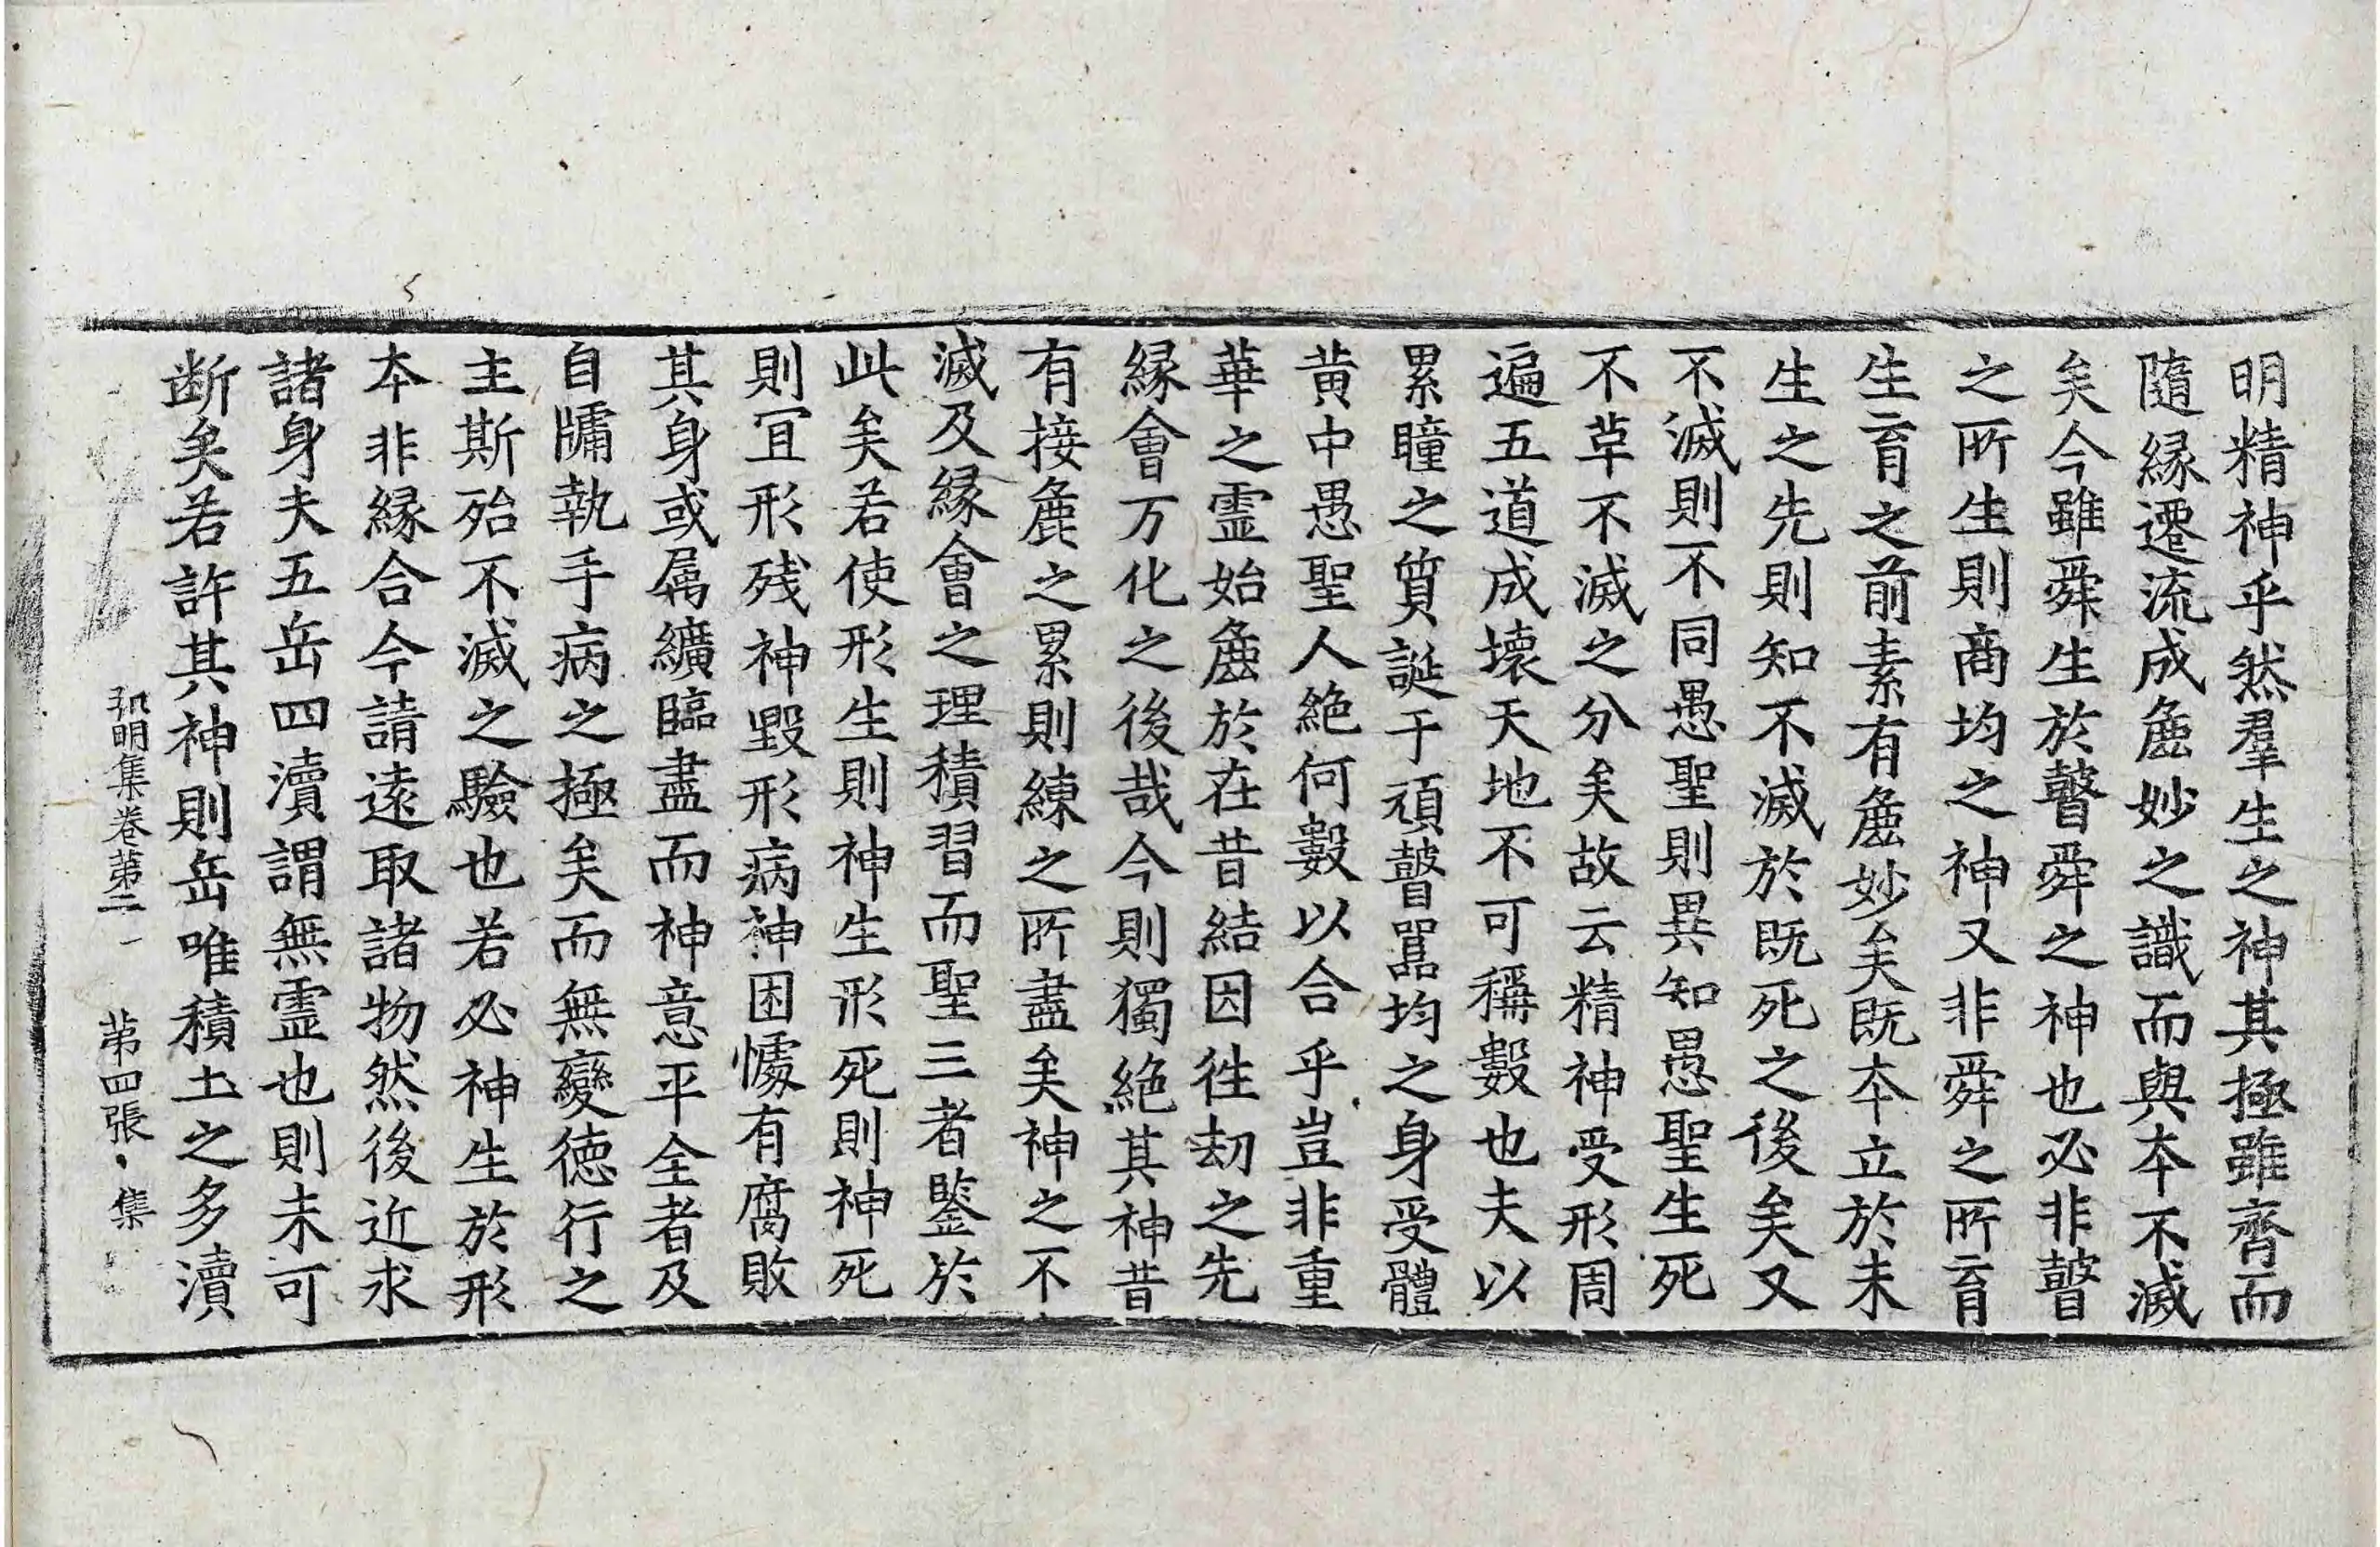 明精神乎然羣生之神其極雖齊而
隨緣遷流成麁妙之識而與本不滅
矣今雖舜生於瞽舜之神也必非瞽
之所生則商均之神又非舜之所育
生育之前素有麁妙矣既本立於未
生之先則知不滅於既死之後矣又
不滅則不同愚聖則異知愚聖生死
不革不滅之分矣故云精神受形周
遍五道成壞天地不可稱數也夫以
累瞳之質誕于頑瞽嚚均之身受體
黄中愚聖人絶何數以合乎豈非重
華之霊始麁於在昔結因徃刧之先
緣會万化之後哉今則獨絶其神昔
有接麁之累則練之所盡矣神之不
滅及緣會之理積習而聖三者鑒於
此矣若使形生則神生形死則神死
則冝形残神毀形病神困㩀有腐敗
其身或属纊臨盡而神意平全者及
自牗執手病之極矣而無變德行之
主斯殆不滅之驗也若必神生於形
夲非緣合今請遠取諸物然後近求
諸身夫五岳四瀆謂無霊也則未可
断矣若許其神則岳唯積土之多瀆
弘明集卷第二 第四張 集